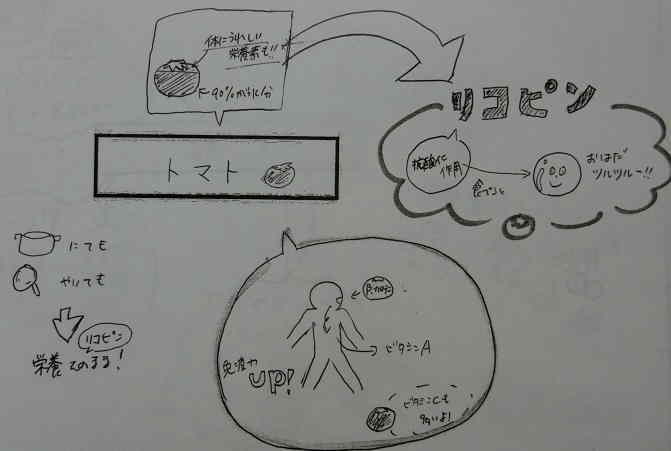 体にうれしい
栄養素も!!
90%が水分
リコピン
抗酸化
作用
食べると
おはだ
ツルツルー!!
トマト
にても
やいても
リコピン
栄養そのまま!
β-カロテン
ビタミンA
免疫力
UP!
ビタミンCも
多いよ!